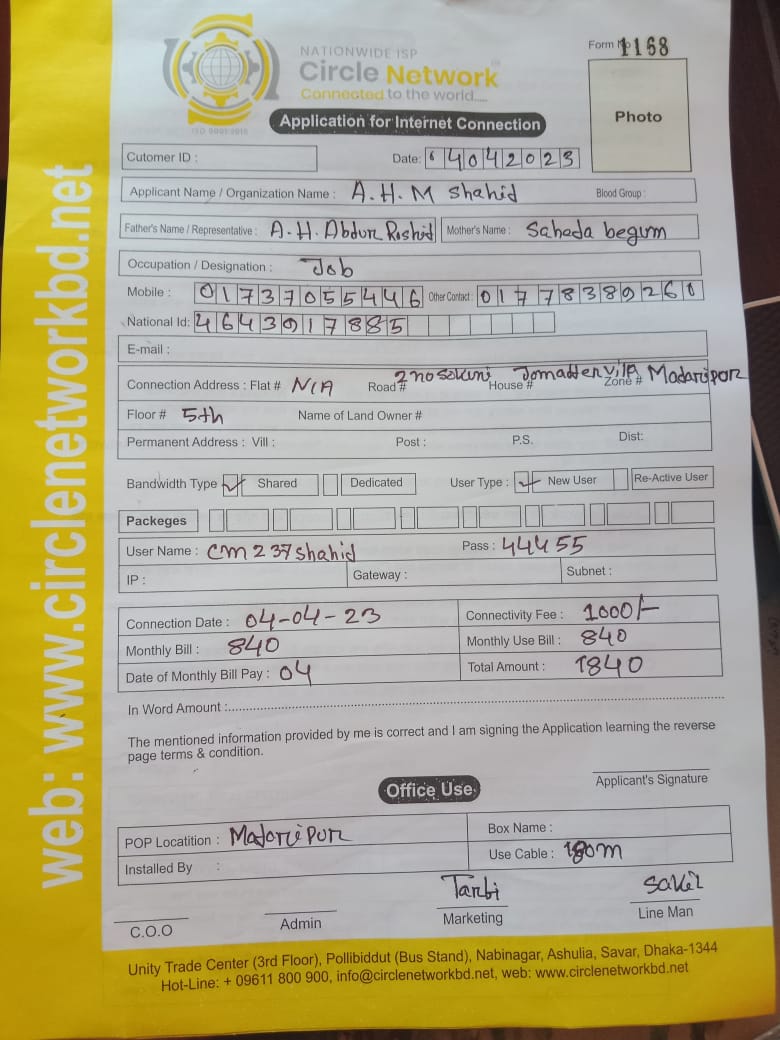 NATIONWIDE ISP
Circle Network
Connected to the world.....
ISO 9001:2015
Form No 1168
Photo
Application for Internet Connection
Cutomer ID :
Date: 04042023
Applicant Name / Organization Name : A.H.M Shahid Blood Group :
Father's Name / Representative : A.H. Abdur Roshid Mother's Name : Saheda begum
Occupation / Designation : Job
Mobile : 01737055446 Other Contact : 01778389260
National Id: 4643917885
E-mail :
Connection Address : Flat # N/A Road # 2no House # Zone # Madaripur
Floor # 5th Name of Land Owner #
Permanent Address : Vill : Post : P.S. Dist:
Bandwidth Type Shared Dedicated User Type : New User Re-Active User
Packeges
User Name : cm237shahid Pass : 44455
IP : Gateway : Subnet :
Connection Date : 04-04-23 Connectivity Fee : 1000/-
Monthly Bill : 840 Monthly Use Bill : 840
Date of Monthly Bill Pay : 04 Total Amount : 1840
In Word Amount :
The mentioned information provided by me is correct and I am signing the Application learning the reverse
page terms & condition.
Applicant's Signature
Office Use
POP Locatition : Madaripur Box Name :
Installed By : Use Cable : 180m
Tanbi Sakil
C.O.O Admin Marketing Line Man
Unity Trade Center (3rd Floor), Pollibiddut (Bus Stand), Nabinagar, Ashulia, Savar, Dhaka-1344
Hot-Line: + 09611 800 900, info@circlenetworkbd.net, web: www.circlenetworkbd.net
web: www.circlenetworkbd.net